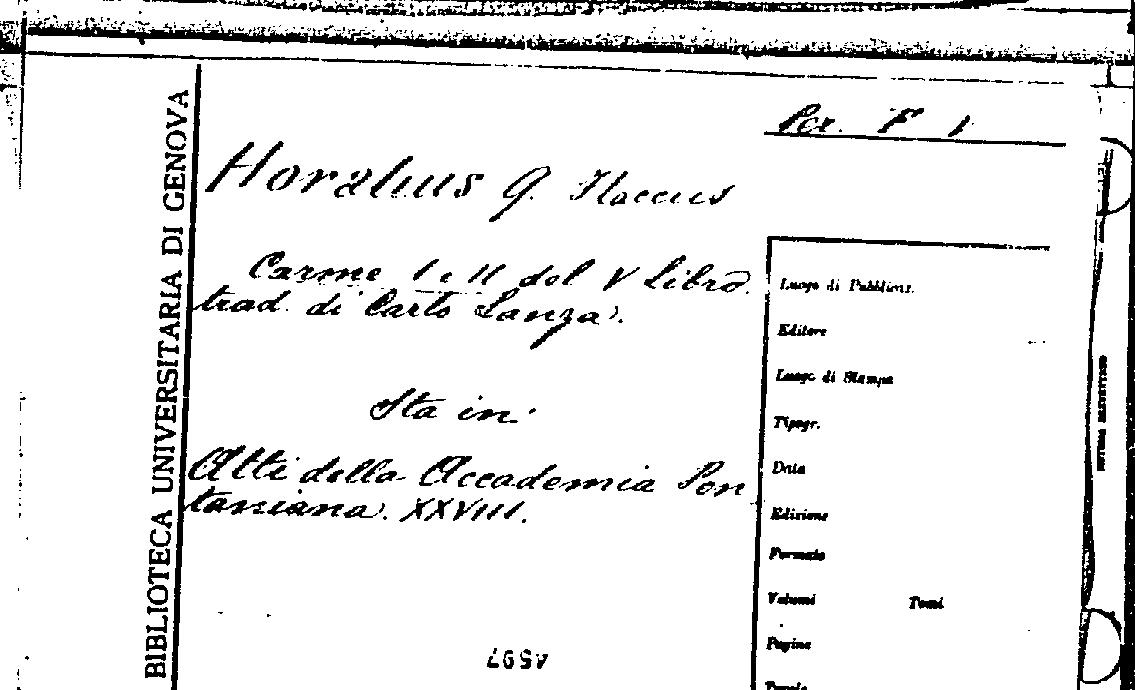 Per. F 1
BIBLIOTECA UNIVERSITARIA DI GENOVA
Horatius Q. Flaccus
Carme I e II del V Libro
trad. di Carlo Lanza.
Sta in:
Atti della Accademia Pon
taniana. XXVIII.
Luogo di Pubblicaz.
Editore
Luogo di Stampa
Tipogr.
Data
Edizione
Formato
Volumi Tomi
Pagine
Tavole